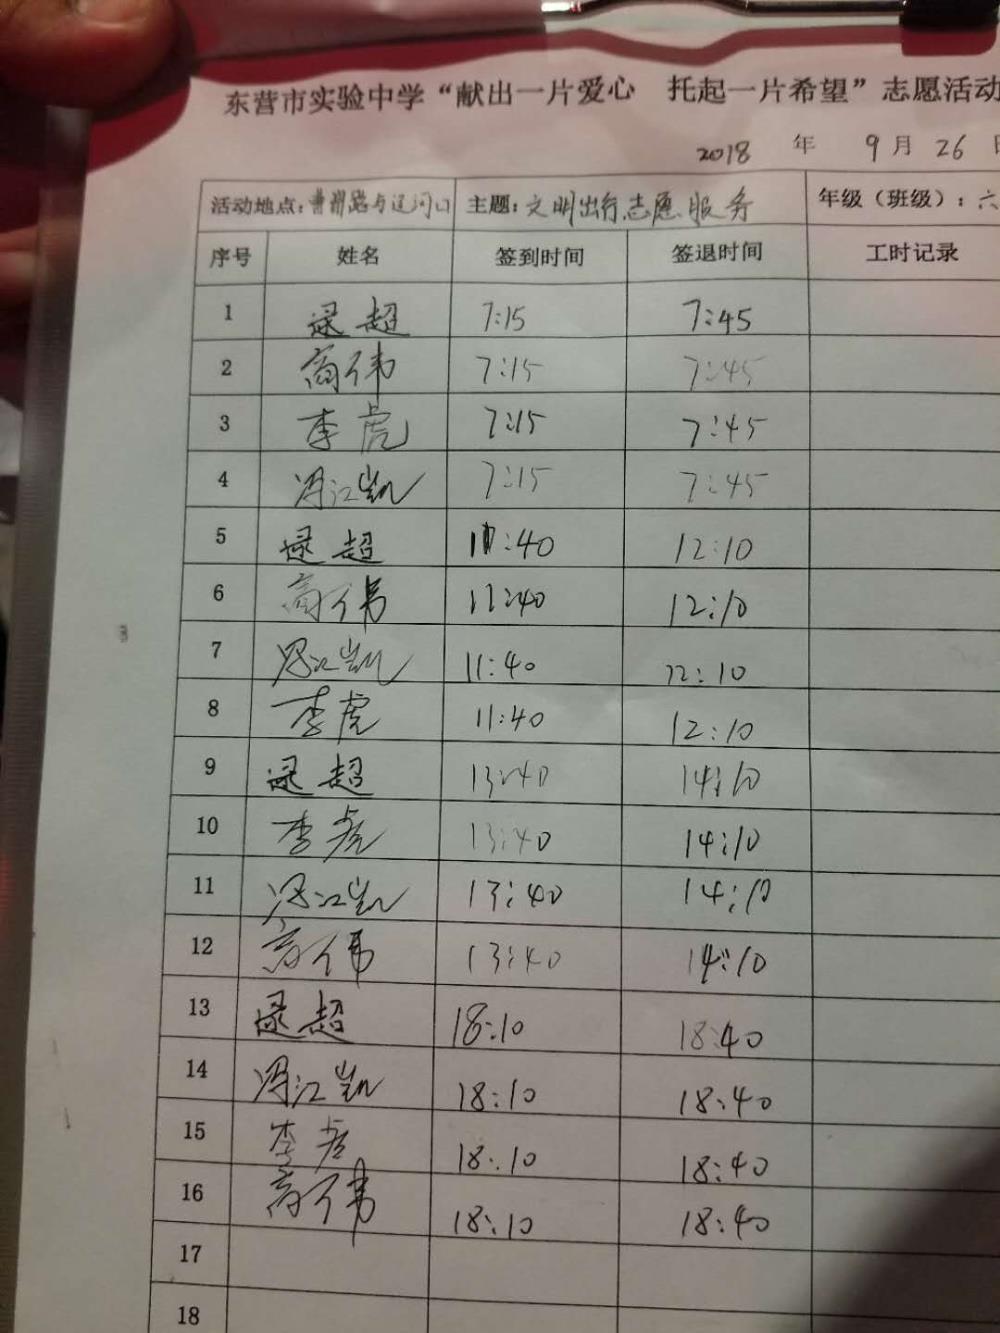 东营市实验中学“献出一片爱心 托起一片希望”志愿活动
2018 年 9 月 26 日
活动地点: 曹州路与辽河口 主题: 文明出行志愿服务 年级（班级）: 六
序号 姓名 签到时间 签退时间 工时记录
1 逯超 7:15 7:45
2 商伟 7:15 7:45
3 李虎 7:15 7:45
4 冯江凯 7:15 7:45
5 逯超 11:40 12:10
6 商伟 11:40 12:10
7 冯江凯 11:40 12:10
8 李虎 11:40 12:10
9 逯超 13:40 14:10
10 李虎 13:40 14:10
11 冯江凯 13:40 14:10
12 商伟 13:40 14:10
13 逯超 18:10 18:40
14 冯江凯 18:10 18:40
15 李虎 18:10 18:40
16 商伟 18:10 18:40
17
18